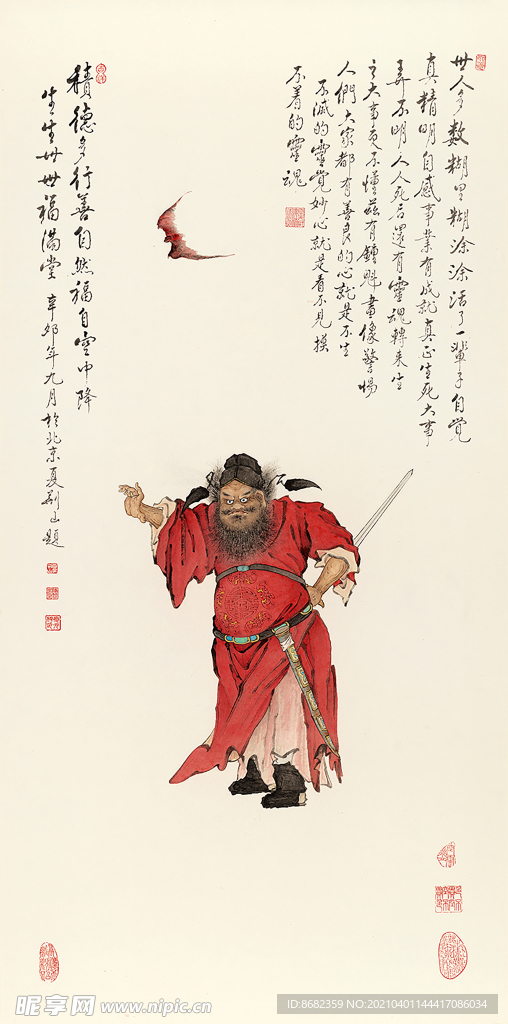 世人多數糊里糊涂涂活了一輩子自覺
真精明自感事業有成就真正生死大事
弄不明人人死后還有靈魂轉来生
之大事更不懂茲有鍾魁畫像警惕
人們大家都有善良的心就是不生
不滅的靈覺妙心就是看不見摸
不着的靈魂
積德多行善自然福自空中降
生生世世福滿堂辛卯年九月於北京夏荊山題
昵享网 www.nipic.cn
ID:8682359 NO:20210401144417086034